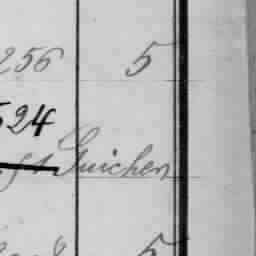 256 5
524
Guichen
5